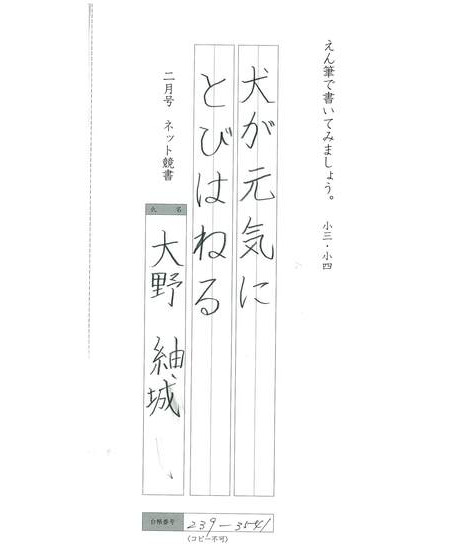 えん筆で書いてみましょう。 小三・小四
犬が元気に
とびはねる
二月号 ネット競書
氏 名
大野 紬城
台帳番号
239-3541
(コピー不可)